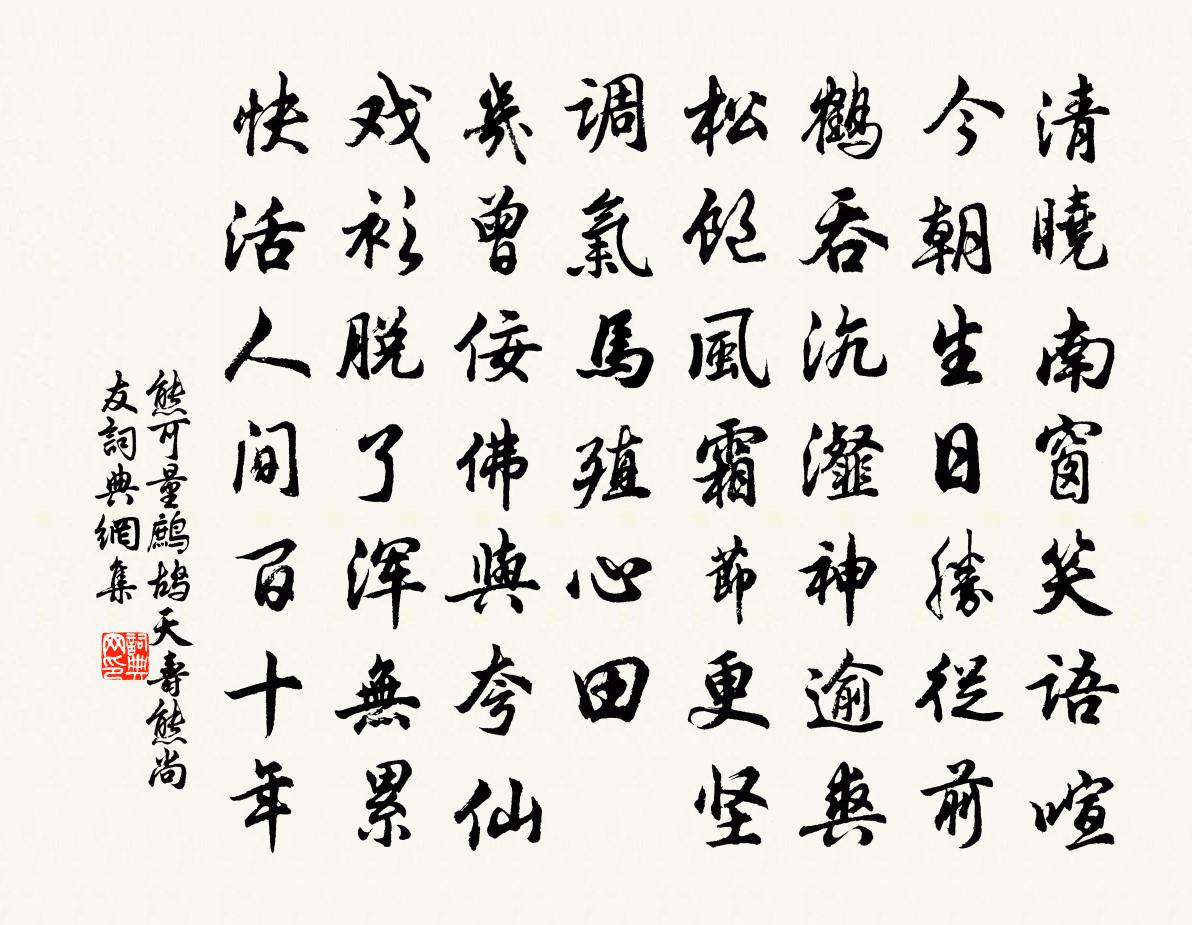 清曉南窗笑語喧
今朝生日勝從前
鶴吞沆瀣神逾爽
松飽風霜節更坚
調氣馬殖心田
幾曾佞佛與夸仙
戏衫脱了浑無累
快活人间百十年
熊可量鷓鴣天壽熊尚
友詞典網集
詞典
网印